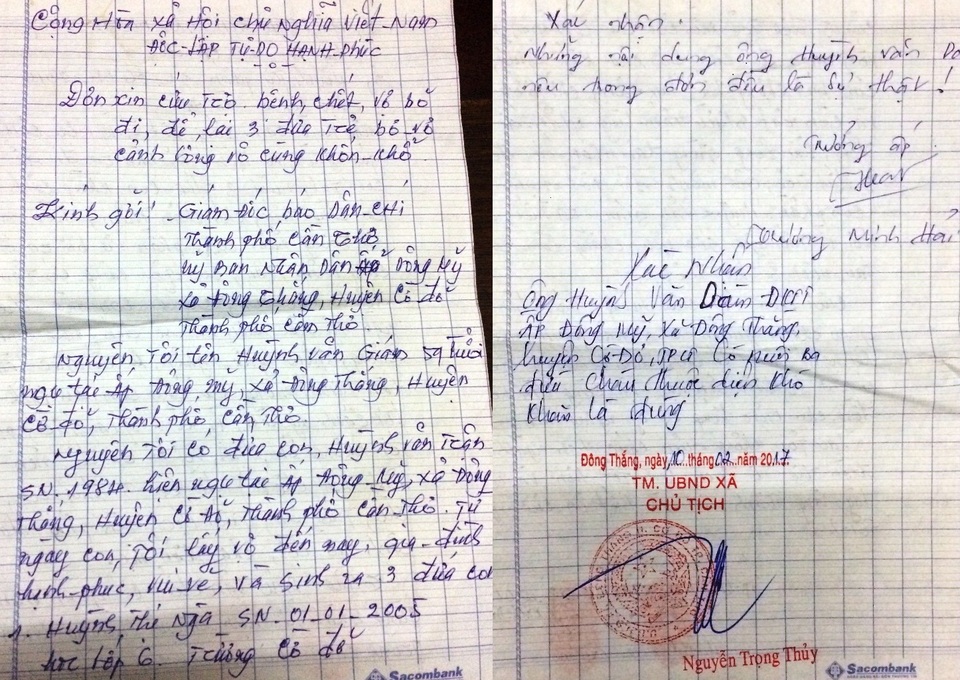 Cộng Hòa xã Hội chủ Nghĩa Việt Nam
Độc-Lập Tự-Do Hạnh-Phúc
Đơn xin cứu trợ. bệnh, chết, vợ bỏ
đi, để, lại 3 đứa trẻ, bơ vơ
cảnh sống vô cùng khốn-khổ
Kính gởi: Giám đốc, báo Dân-Chí
Thành phố Cần Thơ
Uỷ Ban Nhân Dân Đông Mỹ
Xã Đông Thắng, Huyện Cờ đỏ
Thành phố, Cần Thơ.
Nguyên Tôi tên Huỳnh Văn Giám 59 Tuổi
ngụ tại Ấp Đông, Mỹ, Xã Đông Thắng, Huyện
Cờ đỏ, Thành phố, Cần Thơ.
Nguyên Tôi có đứa con, Huỳnh Văn Trận
SN. 1984. hiện ngụ tại Ấp Đông Mỹ, Xã Đông
Thắng, Huyện Cờ đỏ, Thành phố Cần Thơ. Từ
ngày con, Tôi lấy vợ đến nay, gia-đình
hạnh-phúc, vui vẻ, và sinh ra 3 đứa con
1. Huỳnh Thị Ngà SN 01-01-2005
học lớp 6. Trường Cờ đỏ
Sacombank
Xác nhận.
Những nội dung ông Huỳnh Văn
nêu trong đơn đều là sự thật!
Trưởng ấp
Trương Minh
Xác Nhận
Ông Huỳnh Văn
Ấp Đông Mỹ, Xã Đông Thắng,
huyện Cờ Đỏ, TPCT Có nuôi Ba
đứa cháu thuộc diện khó
khăn là đúng
Đông Thắng, ngày 10 tháng 02 năm 2017
TM. UBND XÃ
CHỦ TỊCH
Nguyễn Trọng Thủy
Sacombank